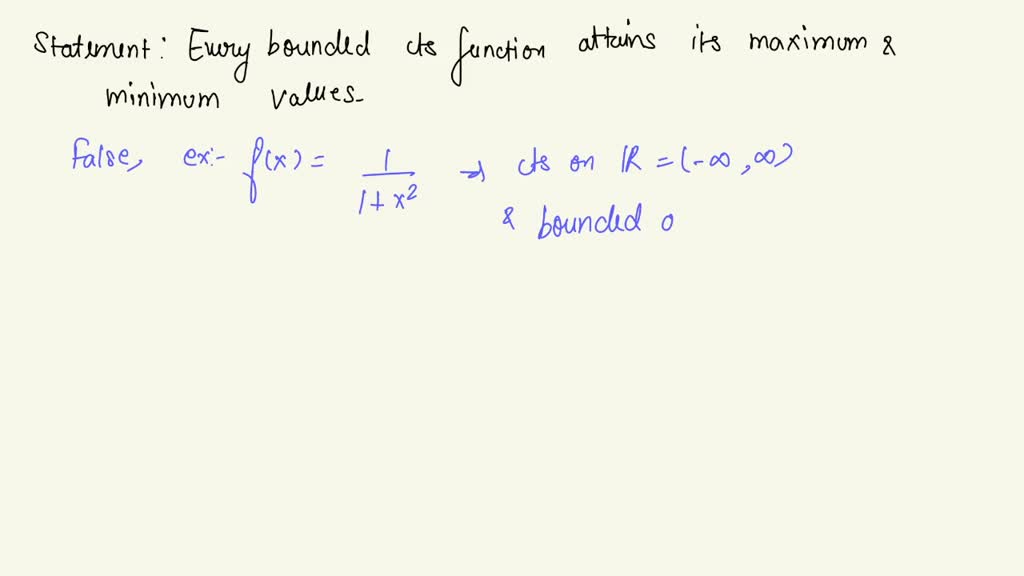 Statement: Every bounded cts function attains its maximum &
minimum values.
False, ex:- f(x) = 1/(1+x²) → cts on ℝ = (-∞, ∞)
& bounded o